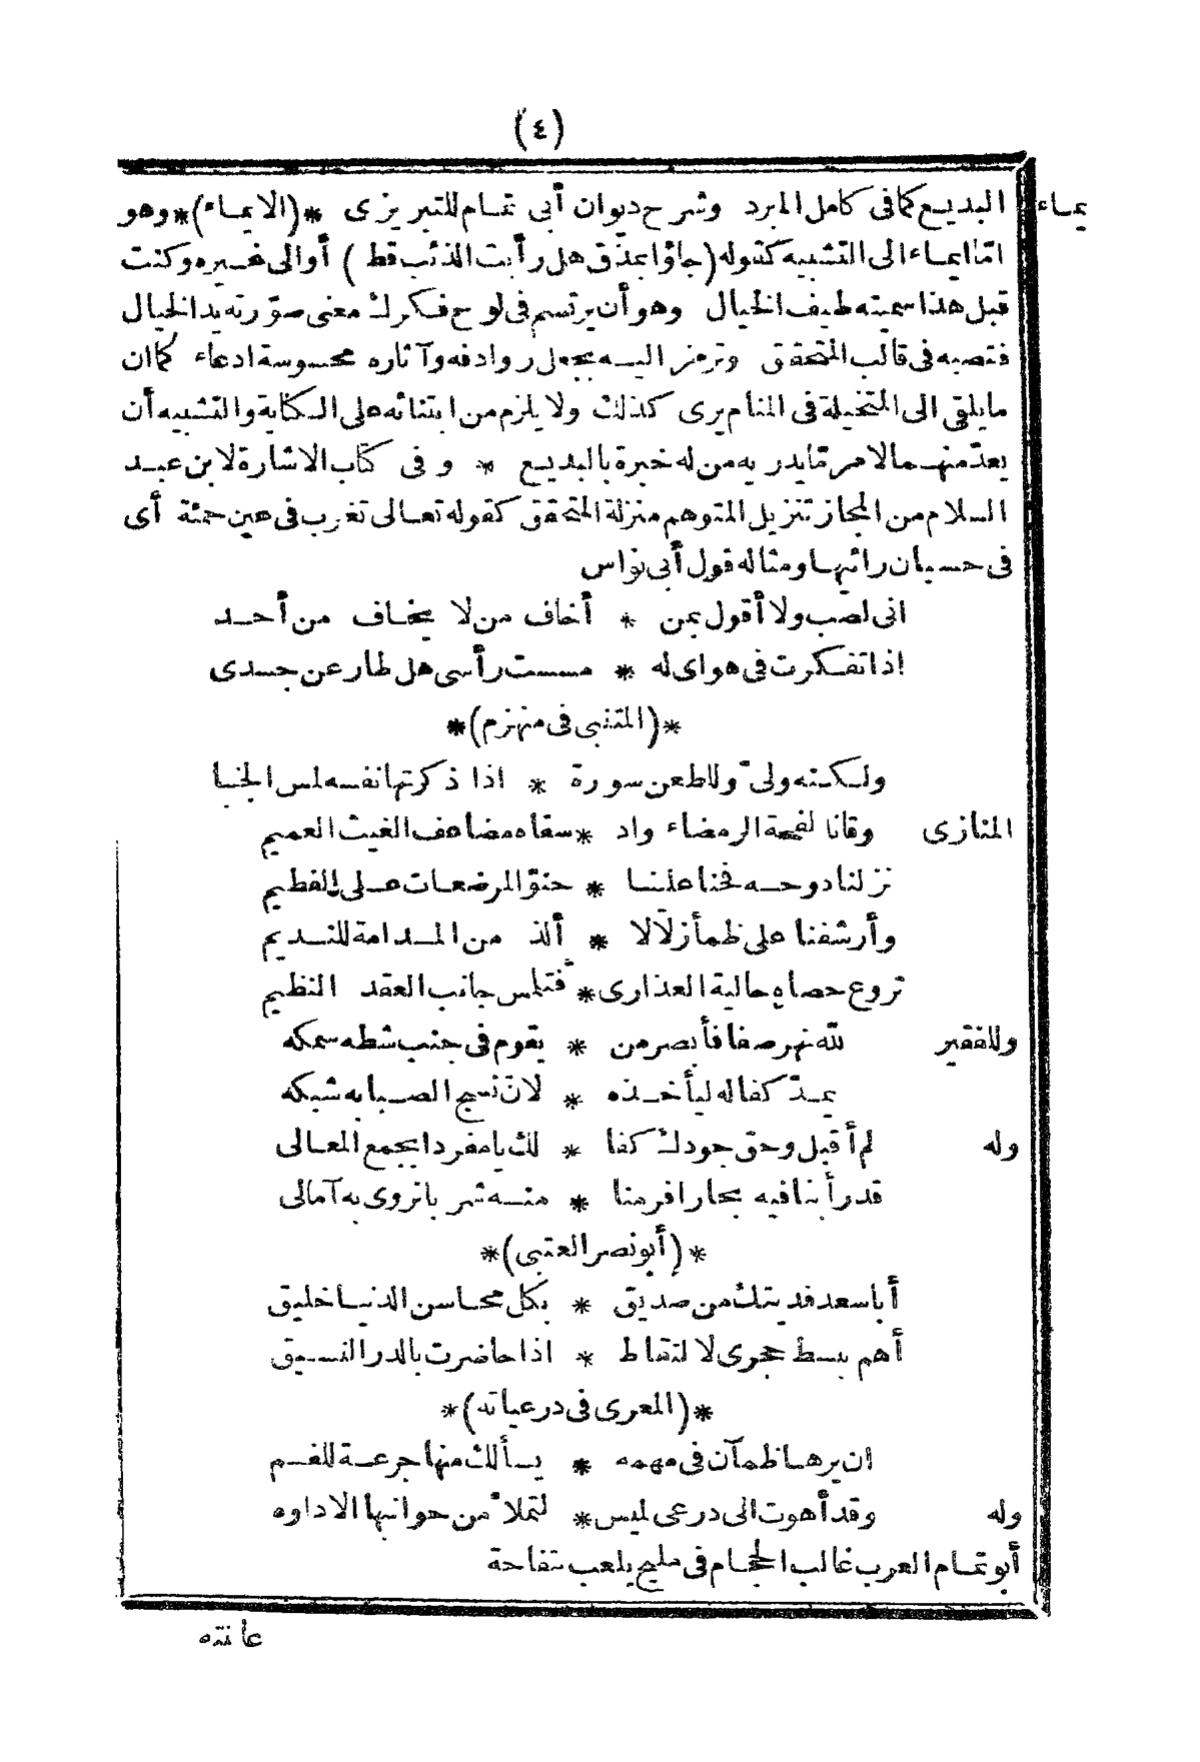 (٤)
البديع كما فى كامل المبرد وشرح ديوان أبى تمام للتبريزى *(الايماء)* وهو
يماء
امّا ايماء الى التشبيه كقوله (جاؤا بمذق هل رأيت الذئب قط) أو الى غيره وكنت
قبل هذا سميته طيف الخيال وهو أن يرتسم فى لوح فكرك معنى صوّرته يد الخيال
فتصبه فى قالب التحقق وترمز اليه بجعل روادفه وآثاره محسوسة ادعاء كما ان
ما يلقى الى المتخيلة فى المنام يرى كذلك ولا يلزم من ابتنائه على الكناية والتشبيه أن
يعدّ منهما لامر مّا يدريه من له خبرة بالبديع * وفى كتاب الاشارة لابن عبد
السلام من المجاز تنزيل المتوهم منزلة المتحقق كقوله تعالى تغرب فى عين حمئة أى
فى حسبان رائيها ومثاله قول أبى نواس
انى لصب ولا أقول بمن * أخاف من لا يخاف من أحد
اذا تفكرت فى هواى له * مسست رأسى هل طار عن جسدى
*(المتنبى فى منهزم)*
ولكنه ولى وللطعن سورة * اذا ذكرتها نفسه لمس الجنبا
المنازى وقانا لفحة الرمضاء واد * سقاه مضاعف الغيث العميم
نزلنا دوحه فحنا علينا * حنوّ المرضعات على الفطيم
وأرشفنا على ظمأ زلالا * ألذ من المدامة للنديم
تروع حصاه حالية العذارى * فتلمس جانب العقد النظيم
وللفقير لله نهر صفا فأبصر من * يقوم فى جنب شطه سمكه
يمدّ كفا له ليأخذه * لان نسج الصبا به شبكه
وله لم أقبل وحق جودك كفا * لك يا مفردا بجمع المعالى
قد رأينا فيه بحارا فرمنا * منه شربا تروى به آمالى
*(أبو نصر العتبى)*
أبا سعد فديتك من صديق * بكل محاسن الدنيا خليق
أهم ببسط حجرى لالتقاط * اذا حاضرت بالدر النسيق
*(المعرى فى درعياته)*
ان يرها ظمآن فى مهمه * يسألك منها جرعة للفم
وله وقد أهوت الى درعى لميس * لتملأ من جوانبها الاداوه
أبو تمام العرب غالب الحجام فى مليح يلعب بتفاحة
عاتقه